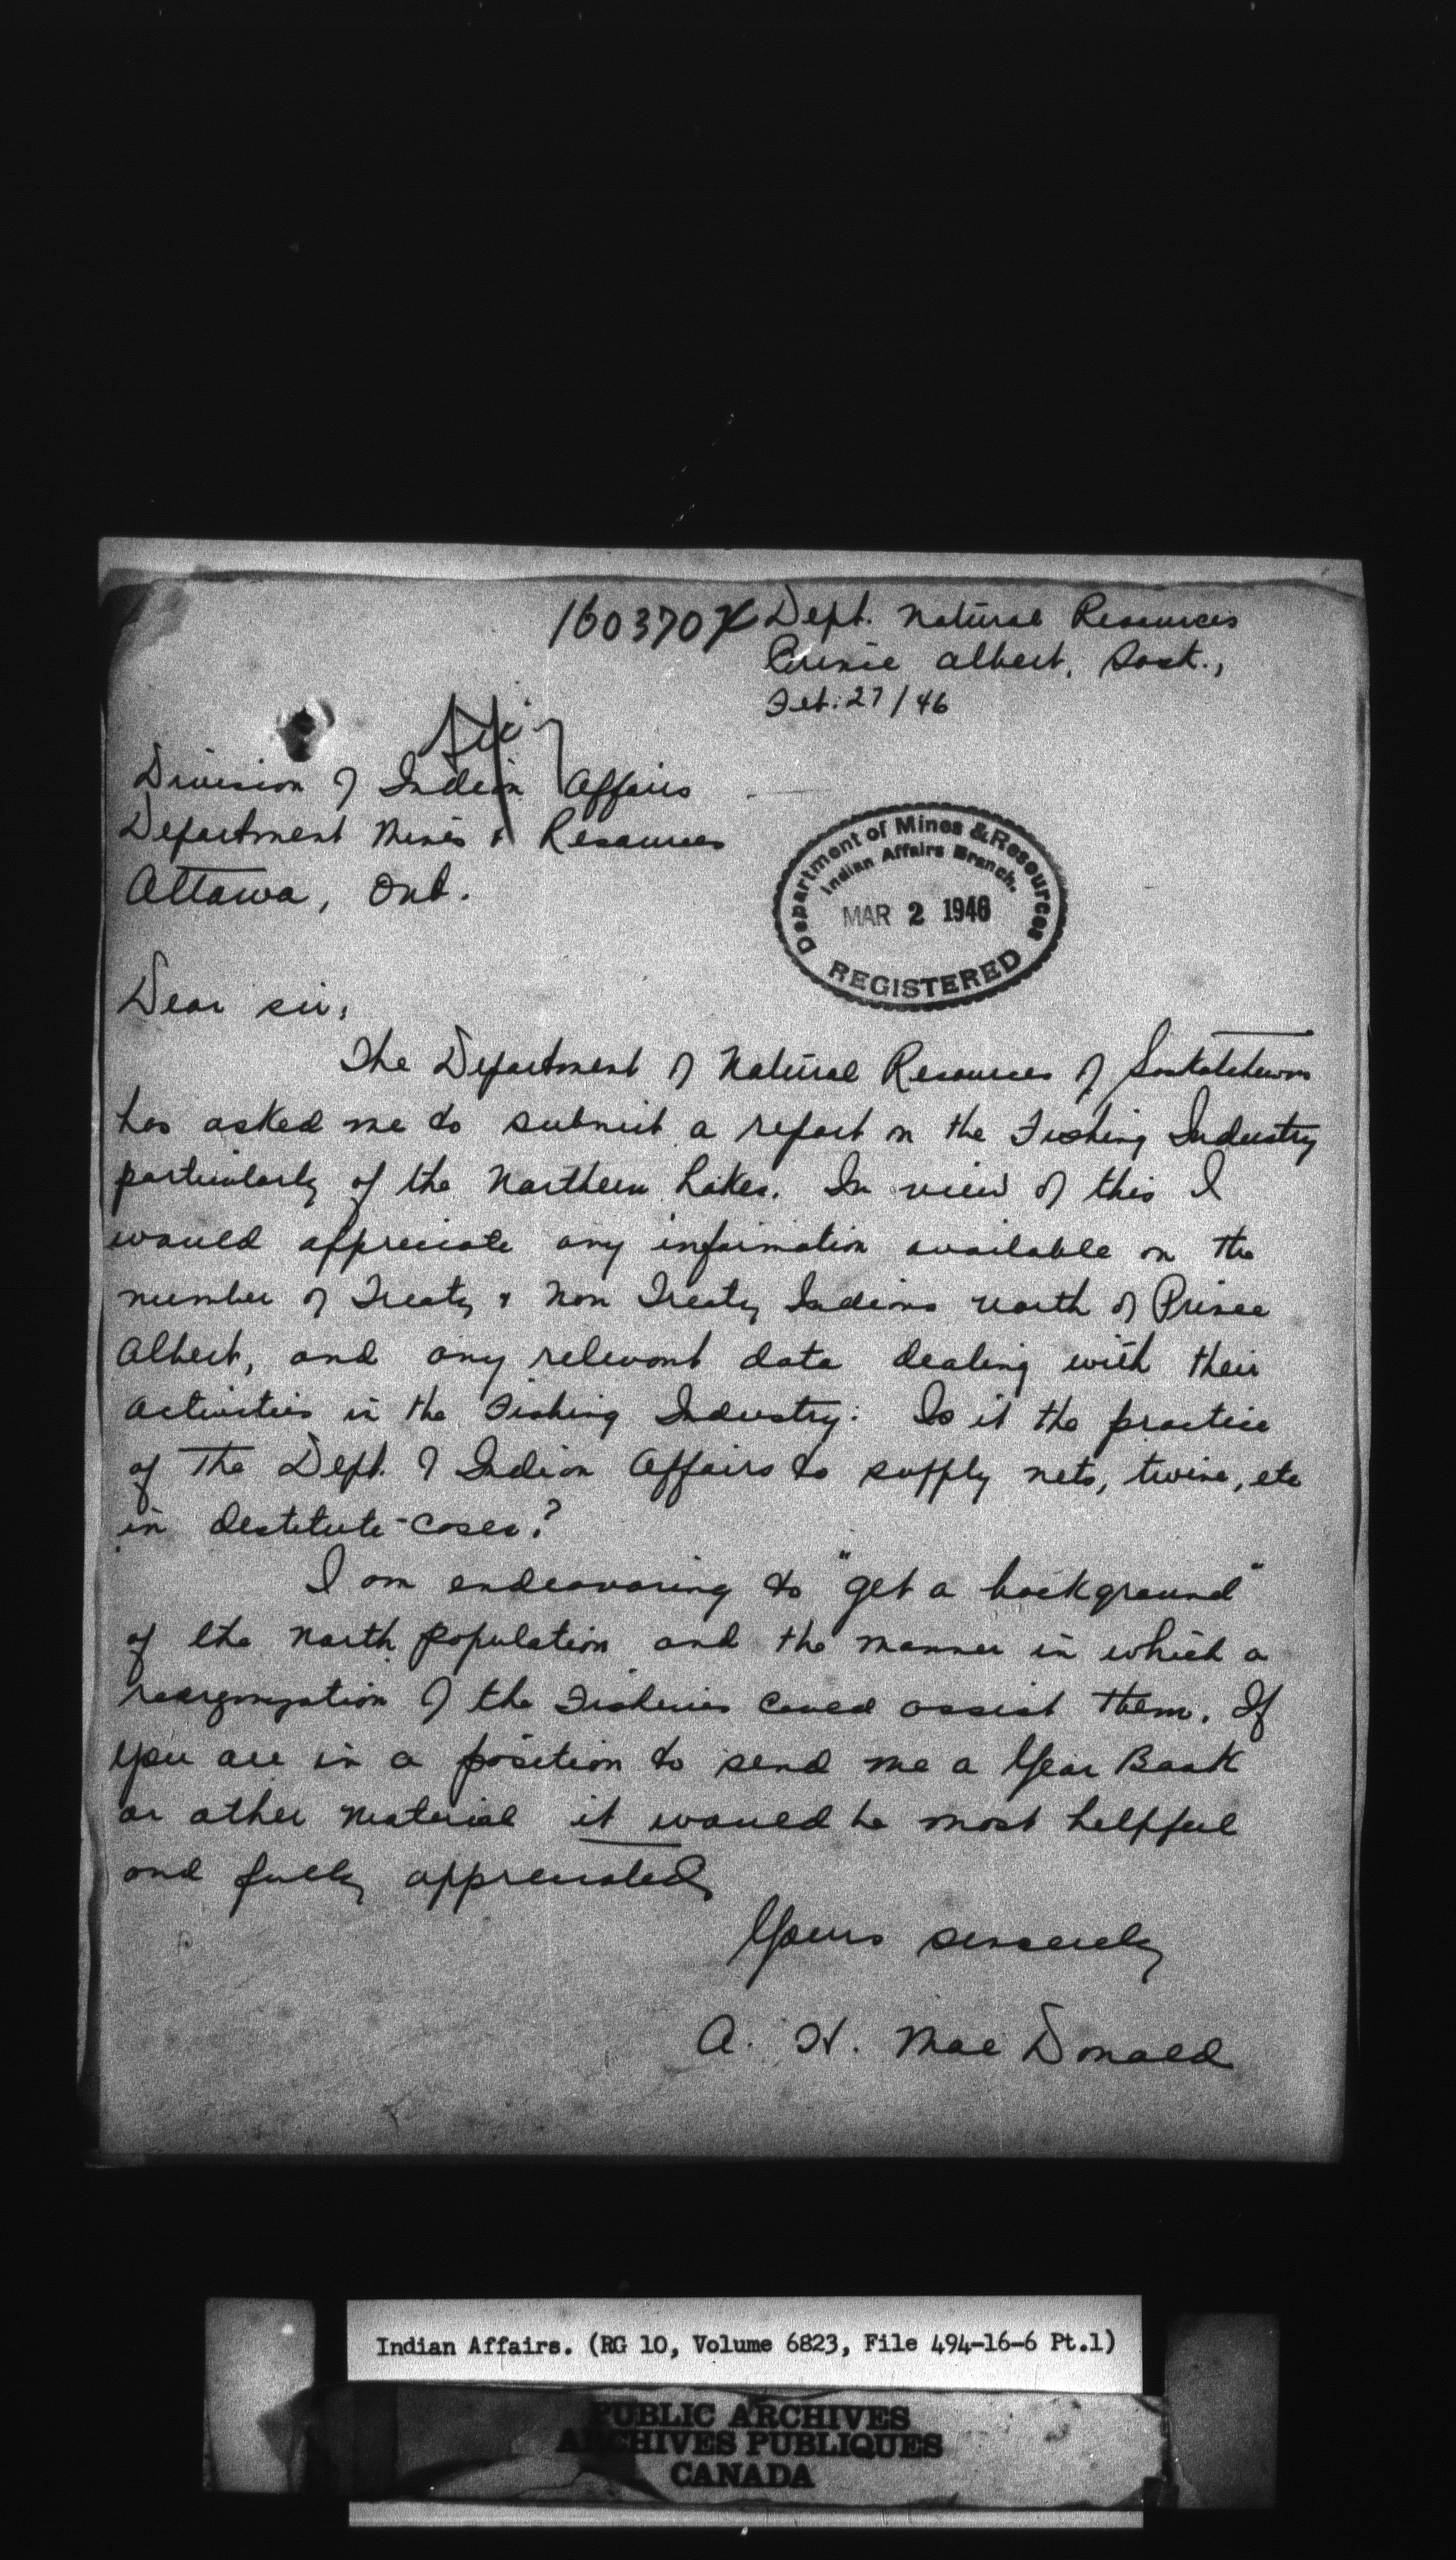 160370 Dept. Natural Resources
Prince Albert, Sask.,
Feb: 27/46
Division of Indian Affairs
Department Mines & Resources
Ottawa, Ont.
Department of Mines & Resources
Indian Affairs Branch.
MAR 2 1946
REGISTERED
Dear sir;
The Department of Natural Resources of Saskatchewan
has asked me to submit a report on the Fishing Industry
particularly of the Northern Lakes. In view of this I
would appreciate any information available on the
number of Treaty & Non Treaty Indians north of Prince
Albert, and any relevant data dealing with their
activities in the Fishing Industry: Is it the practice
of The Dept. of Indian Affairs to supply nets, twine, etc
in destitute-cases?
I am endeavoring to "get a background"
of the north population and the manner in which a
reorganization of the Fisheries could assist them. If
you are in a position to send me a Year Book
or other material it would be most helpful
and fully appreciated,
Yours sincerely
A. H. MacDonald
Indian Affairs. (RG 10, Volume 6823, File 494-16-6 Pt.1)
PUBLIC ARCHIVES
ARCHIVES PUBLIQUES
CANADA